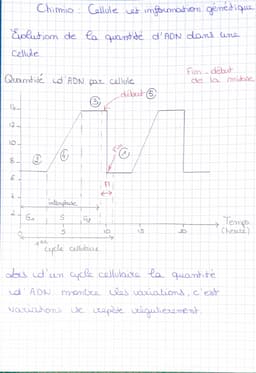 Chimio : Cellule et information génétique
Evolution de la quantité d'ADN dans une
cellule
Quantité d'ADN par cellule
Fin - début
de la mitose
début ⑤
③
14
12
10
8
6
4
2
②
④
Fin
①
M
interphase
G1
S
G2
5
10
15
20
Temps
(heures)
1er
cycle cellulaire
Lors d'un cycle cellulaire la quantité
d'ADN montre des variations, c'est
variations se répète régulièrement.